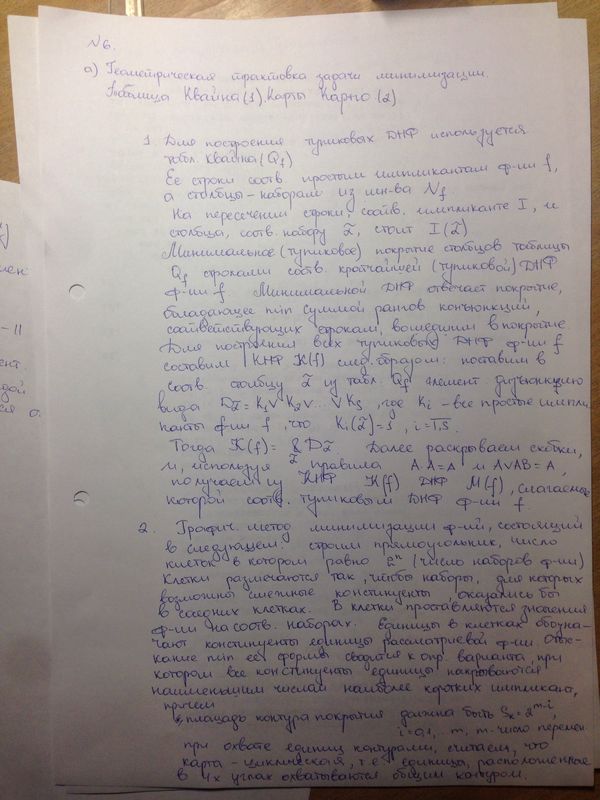 №6.
а) Геометрическая трактовка задачи минимизации.
Таблица Квайна(1). Карты Карно (2)
1. Для построения тупиковых ДНФ используется
табл. Квайна (Qf)
Ее строки соотв. простым импликантам ф-ии f,
а столбцы - наборам из мн-ва Nf
На пересечении строки, соотв. импликанте I, и
столбца, соотв. набору α̃, стоит I(α̃)
Минимальное (тупиковое) покрытие столбцов таблицы
Qf строками соотв. кратчайшей (тупиковой) ДНФ
ф-ии f. Минимальной ДНФ отвечает покрытие,
обладающее min суммой рангов конъюнкций,
соответствующих строкам, вошедшим в покрытие.
Для построения всех тупиковых ДНФ ф-ии f
составим КНФ K(f) след. образом: поставим в
соотв. столбцу α̃ из табл. Qf элемент. дизъюнкцию
вида Dα̃ = K1 ∨ K2 ∨ ... ∨ Ks, где Ki - все простые импли
канты ф-ии f, что Ki(α̃)=1, i=1,s.
Тогда K(f) = & Dα̃. Далее раскрываем скобки,
α̃
и, используя правила A·A=A и A∨AB=A,
получаем из КНФ K(f) ДНФ M(f), слагаемые
которой соотв. тупиковым ДНФ ф-ии f
2. Графич. метод минимизации ф-ий, состоящий
в следующем: строим прямоугольник, число
клеток в котором равно 2ⁿ (число наборов ф-ии)
Клетки размечаются так, чтобы наборы, для которых
возможны смежные конституенты, оказались бы
в соседних клетках. В клетки проставляются значения
ф-ии на соотв. наборах. Единицы в клетках обозна-
чают конституенты единицы рассматриваемой ф-ии. Оты-
скание min ее формы сводится к опр. варианта, при
котором все конституенты единицы накрываются
наименьшим числом наиболее коротких импликант,
причем
площадь контура покрытия должна быть Sк=2ᵐ⁻ⁱ,
i=0,1... m, m - число перемен
при охвате единиц контурами, считаем, что
карта - циклическая, т.е. единицы, расположенные
в 4х углах охватываются общим контуром.